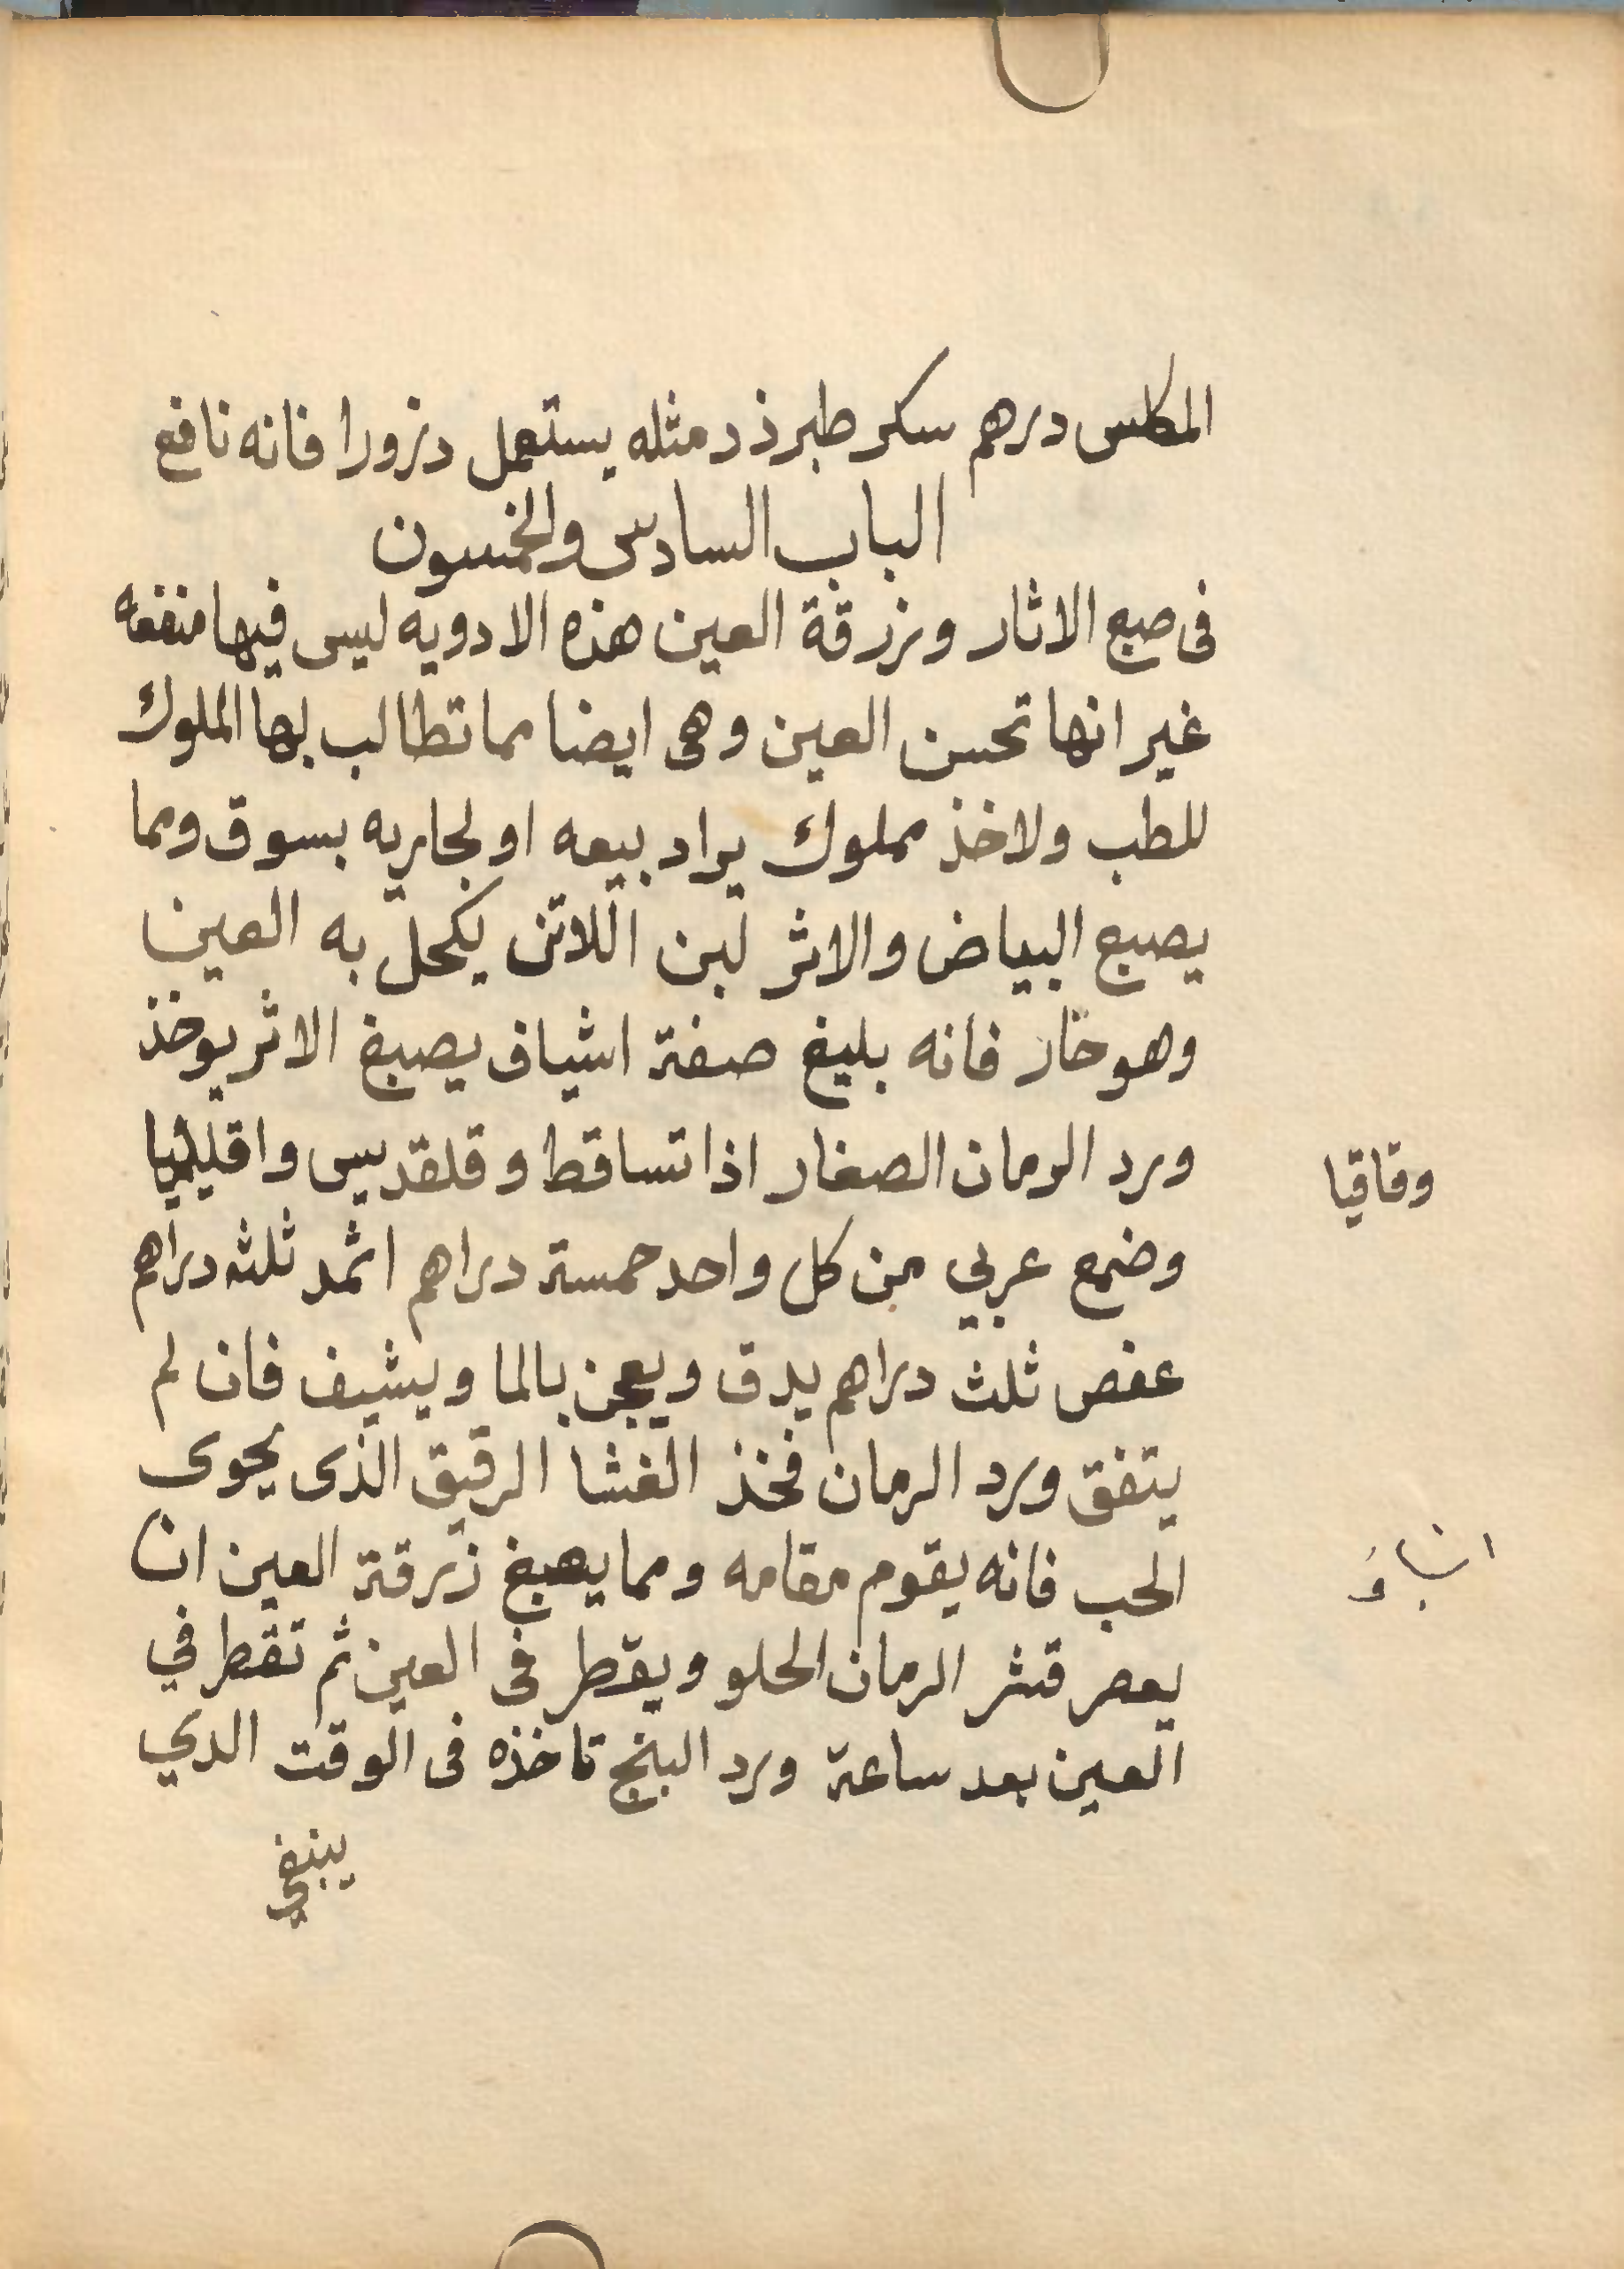 المكلس درهم سكر طبرزد مثله يستعمل دزورا فانه نافع
الباب السادس والخمسون
فى صبع الاثار وزرقة العين هذه الادويه ليس فيها منفعه
غير انها تحسن العين وهى ايضا مما تطالب بها الملوك
للطب ولاخذ مملوك يراد بيعه او لجاريه بسوق ومما
يصبع البياض والاثر لبن اللاتن يكحل به العين
وهو حار فانه بليغ صفة اشياف يصبغ الاثر يوخذ
ورد الرمان الصغار اذا تساقط وقلقديس واقليميا
وقاقيا
وضمع عربي من كل واحد خمسة دراهم اثمد ثلثه دراهم
عفص ثلث دراهم يدق ويعجن بالما ويشيف فان لم
يتفق ورد الرمان فخذ الغشا الرقيق الذى يحوى
الحب فانه يقوم مقامه ومما يصبغ زرقة العين ان
يعصر قشر الرمان الحلو ويقطر فى العين ثم تقطر في
العين بعد ساعة ورد البنج تاخذه فى الوقت الدي
ينبغي